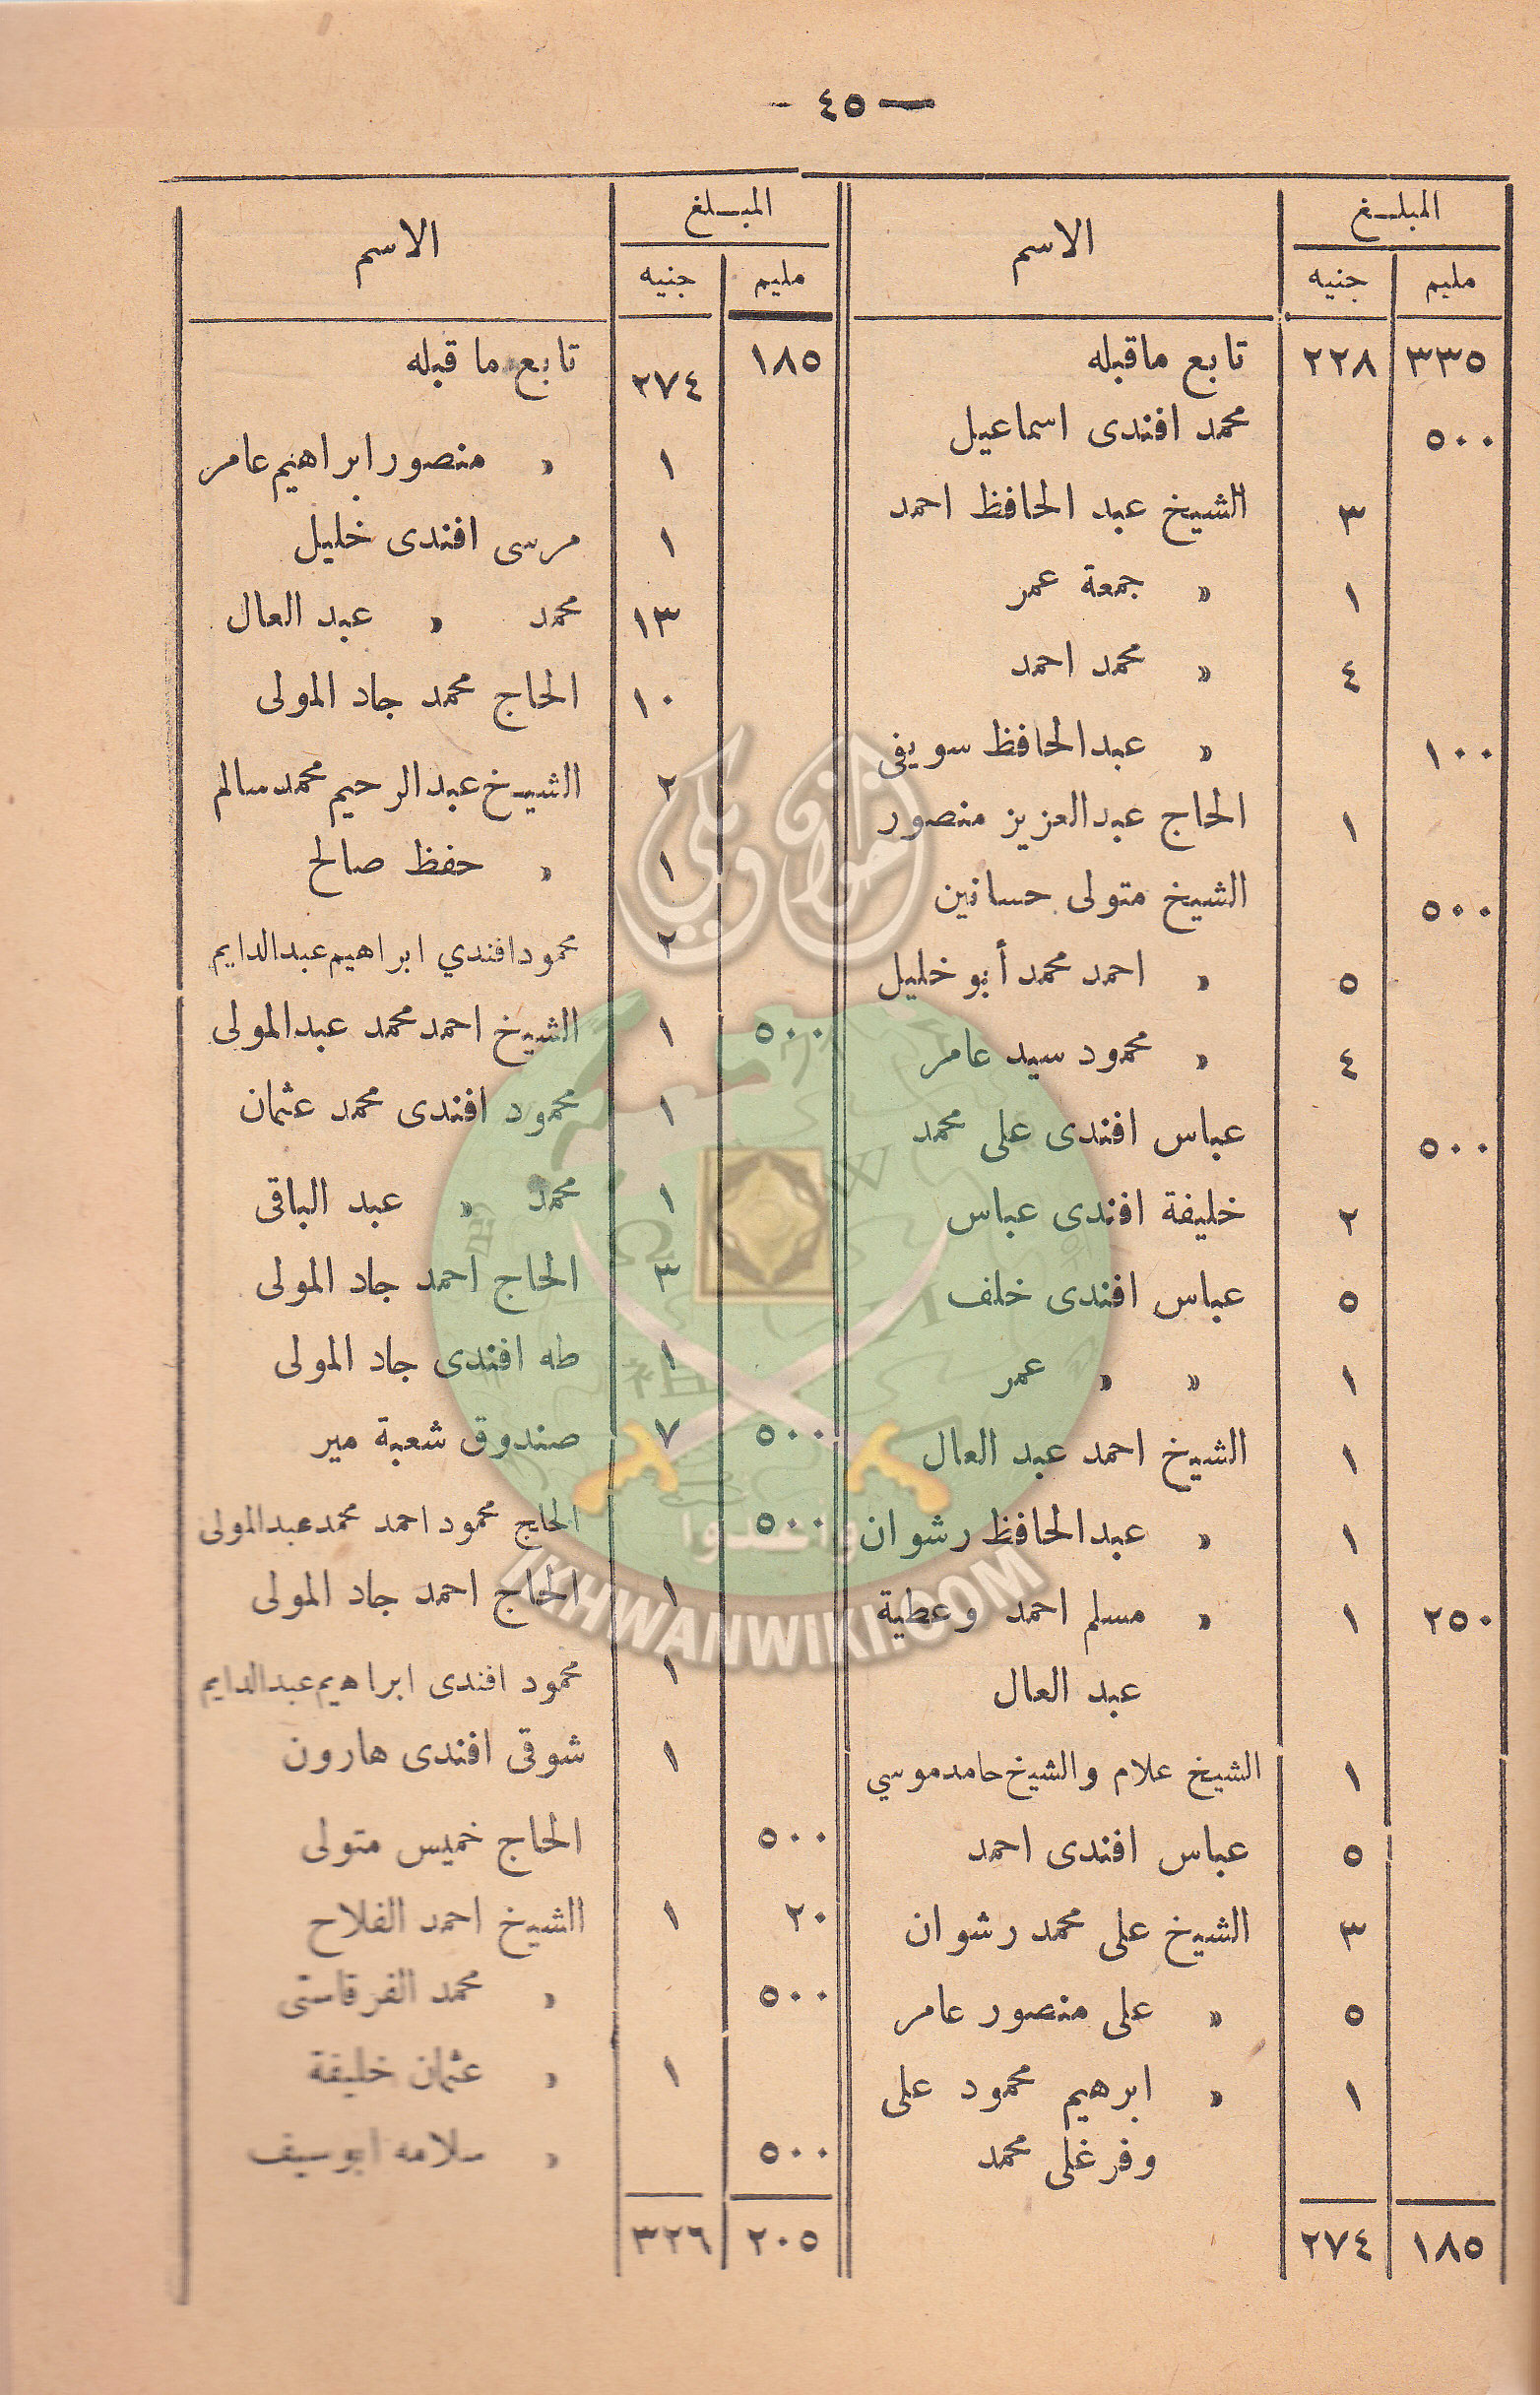 — ٤٥ -
المبلغ الاسم
مليم جنيه
٣٣٥ ٢٢٨ تابع ماقبله
٥٠٠ محمد افندى اسماعيل
٣ الشيخ عبد الحافظ احمد
١ » جمعة عمر
٤ » محمد احمد
١٠٠ » عبدالحافظ سويفى
١ الحاج عبدالعزيز منصور
٥٠٠ الشيخ متولى حسانين
٥ » احمد محمد أبو خليل
٤ » محمود سيد عامر
٥٠٠ عباس افندى على محمد
٢ خليفة افندى عباس
٥ عباس افندى خلف
١ » » عمر
١ الشيخ احمد عبد العال
١ » عبدالحافظ رشوان
٢٥٠ ١ » مسلم احمد وعطية
عبد العال
١ الشيخ علام والشيخ حامد موسي
٥ عباس افندى احمد
٣ الشيخ على محمد رشوان
٥ » على منصور عامر
١ » ابرهيم محمود على
وفرغلى محمد
١٨٥ ٢٧٤
المبلغ الاسم
مليم جنيه
١٨٥ ٢٧٤ تابع ما قبله
١ » منصور ابراهيم عامر
١ مرسى افندى خليل
١٣ محمد » عبد العال
١٠ الحاج محمد جاد المولى
٢ الشيخ عبدالرحيم محمد سالم
١ » حفظ صالح
٢ محمود افندي ابراهيم عبدالدايم
٥٠٠ ١ الشيخ احمد محمد عبدالمولى
١ محمود افندى محمد عثمان
١ محمد » عبد الباقى
٣ الحاج احمد جاد المولى
١ طه افندى جاد المولى
٥٠٠ ٧ صندوق شعبة مير
٥٠٠ الحاج محمود احمد محمد عبدالمولى
١ الحاج احمد جاد المولى
١ محمود افندى ابراهيم عبدالدايم
١ شوقى افندى هارون
٥٠٠ الحاج خميس متولى
٢٠ ١ الشيخ احمد الفلاح
٥٠٠ » محمد الفرقاستى
١ » عثمان خليفة
٥٠٠ » سلامه ابوسيف
٢٠٥ ٣٢٦
إخوان ويكي
وأعدوا
IKHWANWIKI.COM